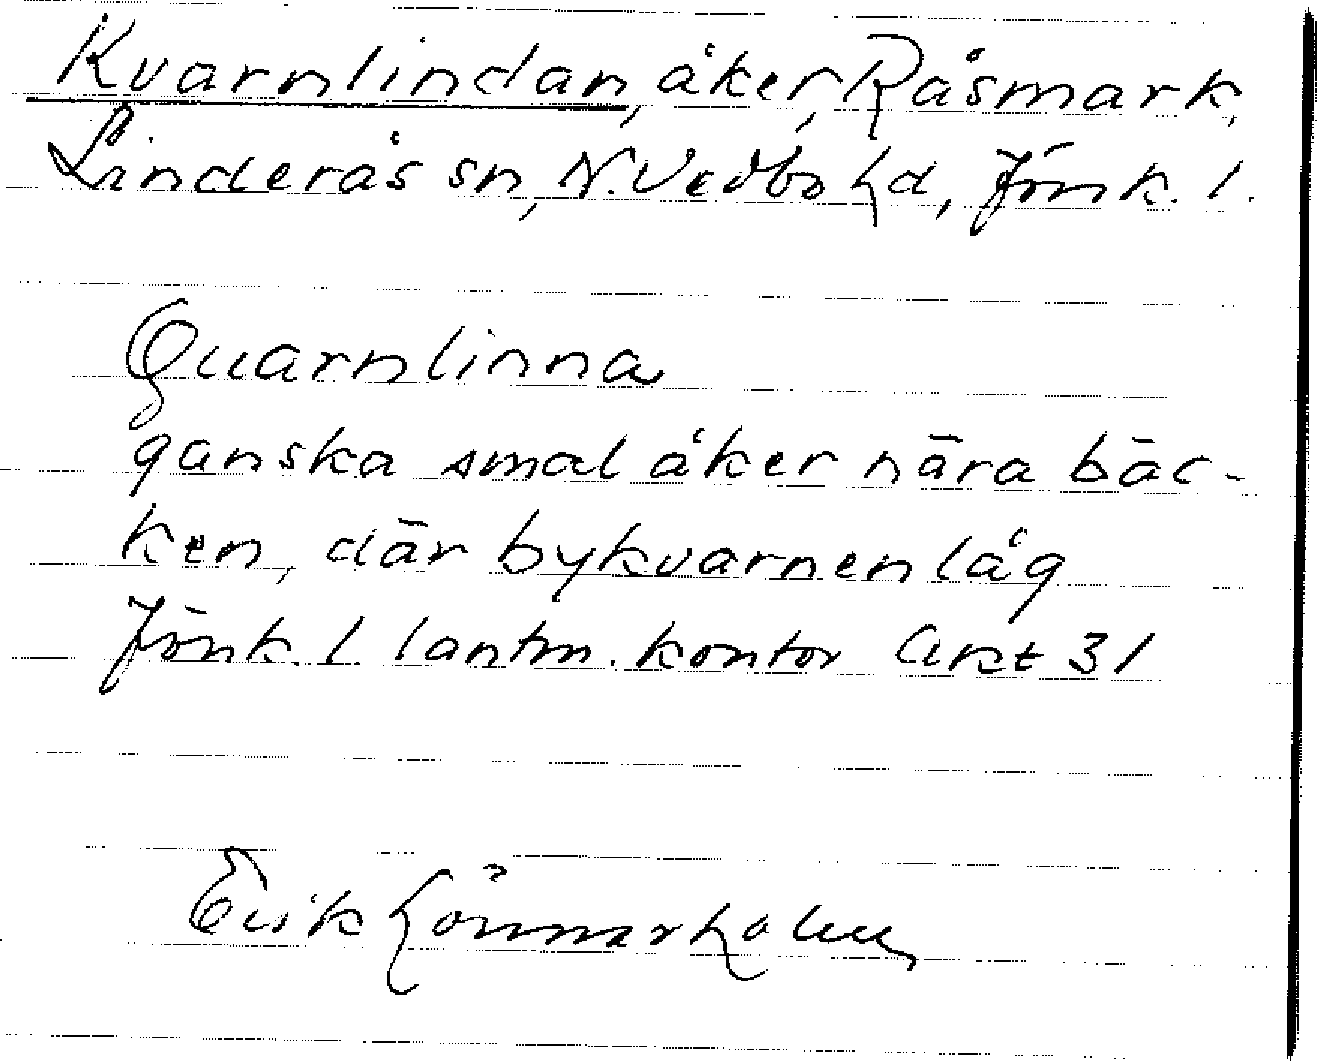 Kvarnlindan, åker, Råsmark,
Linderås sn, N. Vedbo hd, Jönk. l.
Quarnlinna
ganska smal åker nära bäc-
ken, där bykvarnen låg
Jönk. l lantm. kontor Akt 31
Erik Lönnerholm